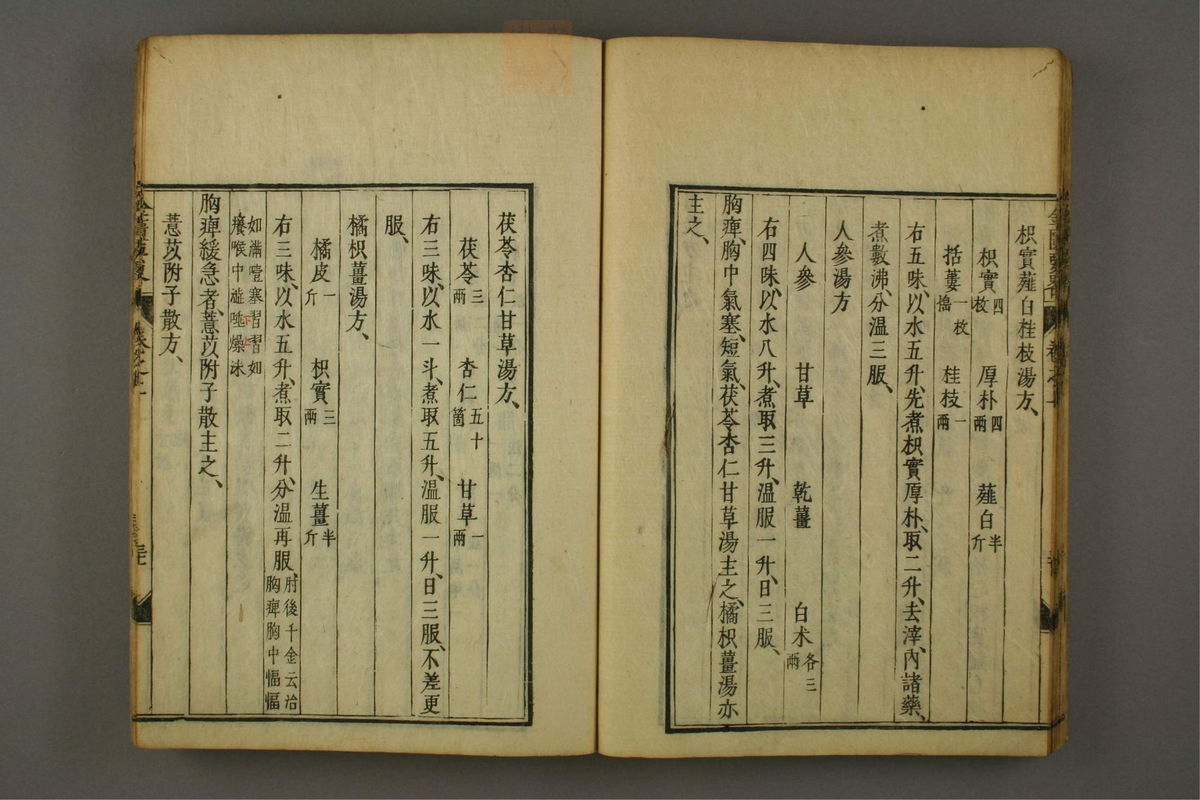 枳實薤白桂枝湯方、
枳實四枚 厚朴四兩 薤白半斤
括蔞一枚搗 桂枝一兩
右五味、以水五升、先煮枳實厚朴、取二升、去滓、內諸藥、
煮數沸、分溫三服、
人參湯方
人參 甘草 乾薑 白朮各三兩
右四味、以水八升、煮取三升、溫服一升、日三服、
胸痺、胸中氣塞、短氣、茯苓杏仁甘草湯主之、橘枳薑湯亦
主之、
茯苓杏仁甘草湯方、
茯苓三兩 杏仁五十箇 甘草一兩
右三味、以水一斗、煮取五升、溫服一升、日三服、不差更
服、
橘枳薑湯方、
橘皮一斤 枳實三兩 生薑半斤
右三味、以水五升、煮取二升、分溫再服、肘後千金云治胸痺胸中愊愊
如滿噎塞習習如癢喉中澁唾燥沫
胸痺緩急者、薏苡附子散主之、
薏苡附子散方、